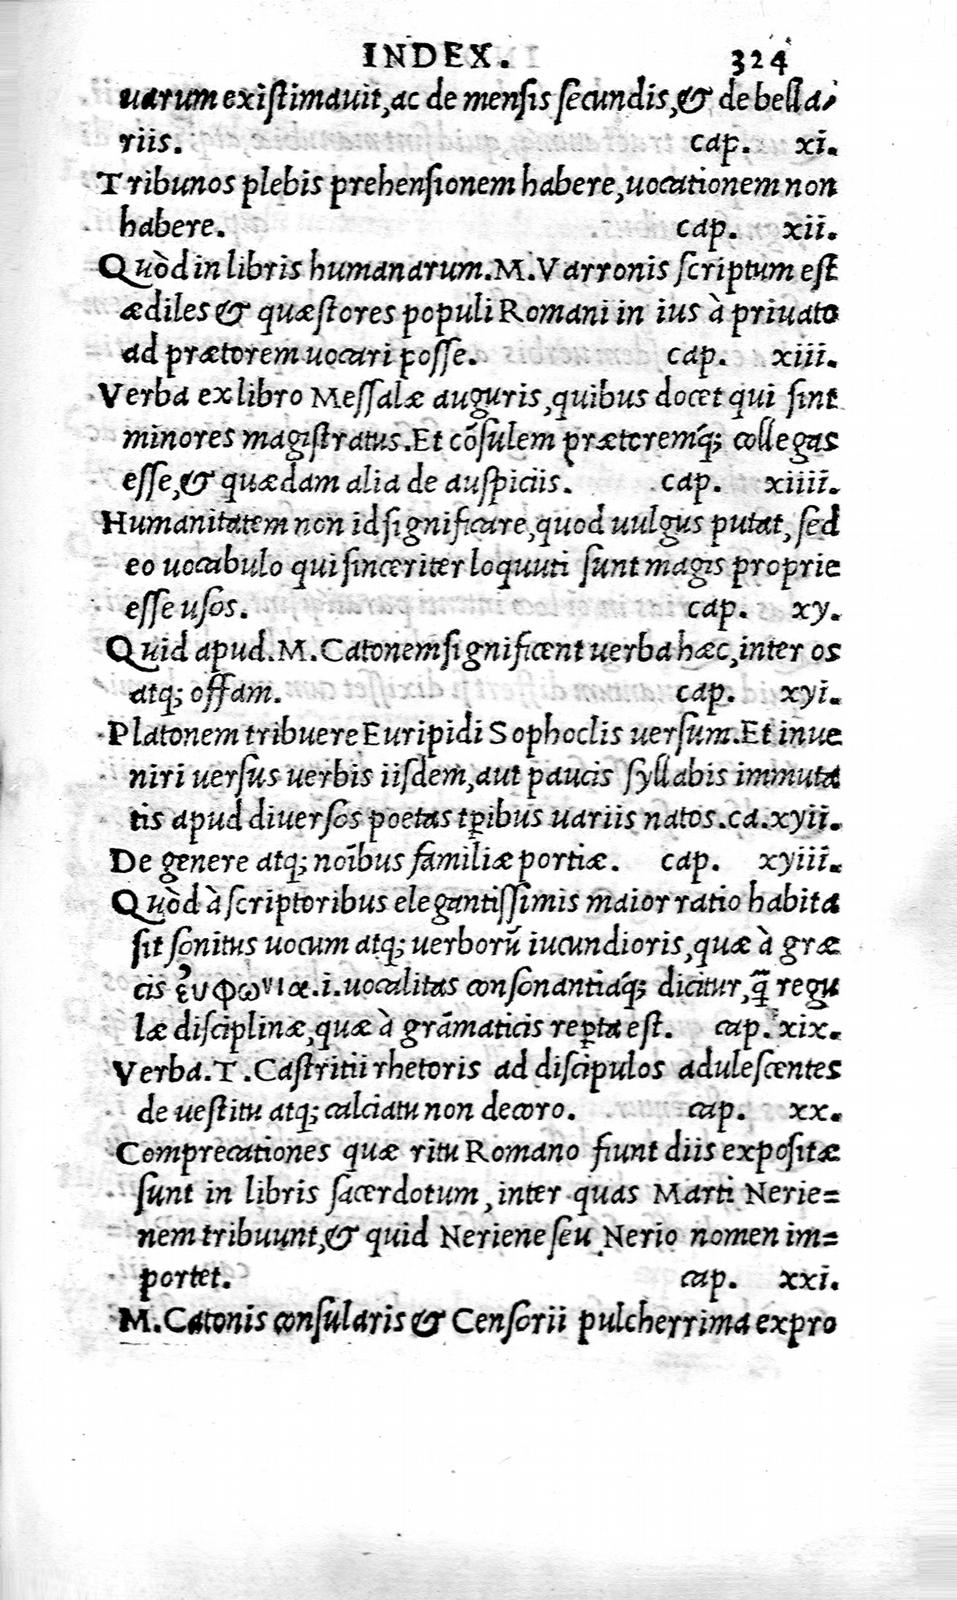 INDEX. 324
uarum existimauit, ac de mensis secundis, & de bella-
riis. cap. xi.
Tribunos plebis prehensionem habere, uocationem non
habere. cap. xii.
Quòd in libris humanarum. M. Varronis scriptum est
ædiles & quæstores populi Romani in ius à priuato
ad prætorem uocari posse. cap. xiii.
Verba ex libro Messalæ auguris, quibus docet qui sint
minores magistratus. Et cõsulem prætoremq́; collegas
esse, & quædam alia de auspiciis. cap. xiiii.
Humanitatem non id significare, quod uulgus putat, sed
eo uocabulo qui sinceriter loquuti sunt magis proprie
esse usos. cap. xy.
Quid apud. M. Catonem significent uerba hæc, inter os
atq; offam. cap. xyi.
Platonem tribuere Euripidi Sophoclis uersum. Et inue
niri uersus uerbis iisdem, aut paucis syllabis immuta
tis apud diuersos poetas tꝑibus uariis natos. ca. xyii.
De genere atq; noībus familiæ portiæ. cap. xyiii.
Quòd à scriptoribus elegantissimis maior ratio habita
sit sonitus uocum atq; uerborũ iucundioris, quæ à græ
cis ἐυφωνια. i. uocalitas consonantiaq́; dicitur, q̃ regu
læ disciplinæ, quæ à grãmaticis reꝑta est. cap. xix.
Verba. T. Castritii rhetoris ad discipulos adulescentes
de uestitu atq; calciatu non decoro. cap. xx.
Comprecationes quæ ritu Romano fiunt diis expositæ
sunt in libris sacerdotum, inter quas Marti Nerie=
nem tribuunt, & quid Neriene seu Nerio nomen im=
portet. cap. xxi.
M. Catonis consularis & Censorii pulcherrima expro